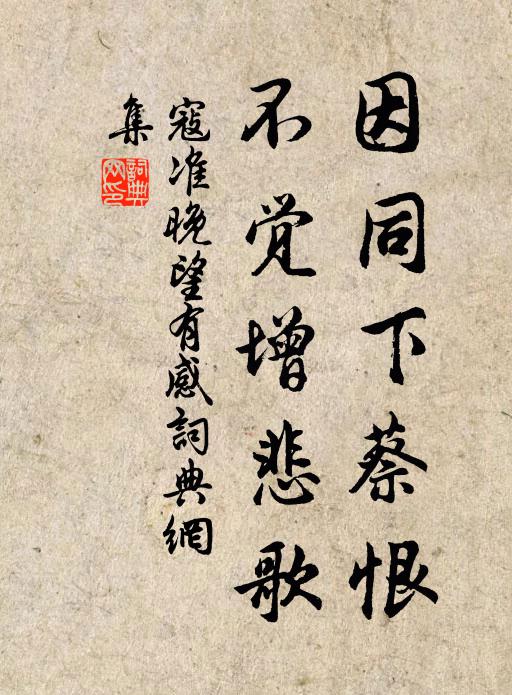 因同下蔡恨
不觉增悲歌
寇准晚望有感詞典網
集
詞典
网印